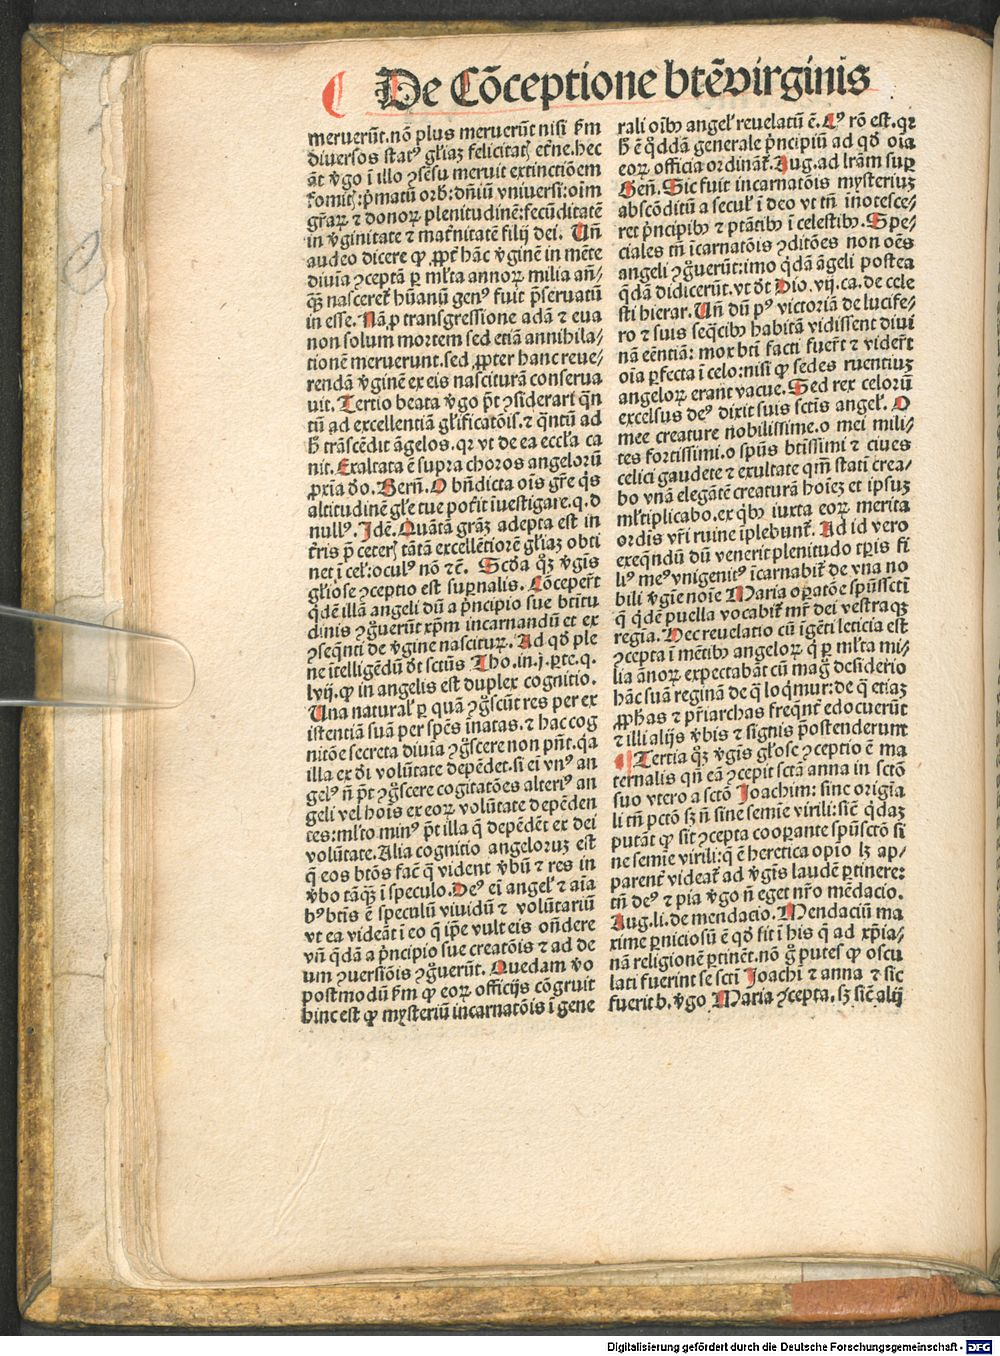 De Cōceptione btēvirginis
meruerūt.nō plus meruerūt nisi ẜm
diuersos statꝰ gl̄iaꝫ felicitatꝭ et̄ne.hec
āt v̄go ī illo ꝯsēsu meruit extinctiōem
fomitꝭ:p̄matū orb:dn̄iū vniuersi:oīm
gr̄aꝝ ⁊ donoꝝ plenitudinē:fecūditatē
in v̄ginitate ⁊ mat̄nitatē filij dei. Un̄
audeo dicere ꝙ ꝓpt̄ hāc v̄ginē in mēte
diuīa ꝯceptā ꝑ ml̄ta annoꝝ milia an̄-
qꝫ̄ nasceret̄ hūanū genꝰ fuit p̄seruatū
in esse. Nā ꝓ transgressione adā ⁊ eua
non solum mortem sed etiā annihila-
tionē meruerunt.sed ꝓpter hanc reue-
rendā v̄ginē ex eis nasciturā conserua
uit. Tertio beata v̄go p̄t ꝯsiderari qn̄
tū ad excellentiā gl̄ificatōis.⁊ qn̄tū ad
h̄ trāscēdit āgelos.qꝛ vt de ea eccl̄a ca
nit. Exaltata ē supra choros angeloꝝū
ꝓxīa d̄o. Bern̄. O bn̄dicta oīs gr̄e q̄s
altitudinē gl̄e tue pot̄it īuestigare.q.d
nullꝰ. Idē. Quātā grāꝫ adepta est in
t̄ris p̄ ceterꝭ tātā excellētiorē gl̄iaꝫ obti
net ī cel̄:oculꝰ nō ⁊c̄. Scd̄a qꝫ̄ v̄gīs
gl̄iose ꝯceptio est suꝑnalis. Cōceper̄t
q̄dē illā angeli dū a p̄ncipio sue btītu
dinis ꝯg̊uerūt xp̄m incarnandū et ex
ꝯseq̄nti de v̄gine nasciturꝝ. Ad qd̄ ple
ne ītelligēdū d̄t sctūs Tho.in.j.ꝑte.q.
lvij.ꝙ in angelis est duplex cognitio.
Una natural̄ ꝑ quā ꝯg̊scūt res per ex
istentiā suā per spēs inatas.⁊ hac cog
nitōe secreta diuīa ꝯg̊scere non pn̄t.q̄a
illa ex d̄i volūtate depēdet.si ei vnꝰ an
gelꝰ n̄ p̄t ꝯg̊scere cogitatōes alteriꝰ an
geli vel hoīs ex eoꝝ volūtate depēden
tes:ml̄to minꝰ p̄t illa q̄ depēdēt ex dei
volūtate.Alia cognitio angeloruꝫ est
q̄ eos btōs fac̄ q̄ vident v̄bū ⁊ res in
v̄bo tāqꝫ̄ ī speculo. Deꝰ eī angel̄ ⁊ aīa
bꝰ btīs ē speculū viuidū ⁊ volūtariū
vt ea videāt ī eo q̄ ip̄e vult eis on̄dere
vn̄ q̄dā a p̄ncipio sue creatōis ⁊ ad de
um ꝯuersiōis ꝯg̊uerūt. Quedam v̄o
postmodū ẜm ꝙ eoꝝ officijs cōgruit
hinc est ꝙ mysteriū incarnatōis ī gene
rali oībꝫ angel̄ reuelatū ē. Cꝰ rō est.qꝛ
h̄ ē q̊ddā generale p̄ncipiū ad qd̄ oīa
eoꝝ officia ordināt̄. Aug.ad lr̄am suꝑ
Gen̄. Sic fuit incarnatōis mysteriuꝫ
abscōditū a secul̄ ī deo vt tn̄ inotesce-
ret p̄ncipibꝫ ⁊ ptātibꝫ ī celestibꝫ. Spe-
ciales tn̄ īcarnatōis ꝯditōes non oēs
angeli ꝯg̊uerūt:imo q̄dā āgeli postea
q̄dā didicerūt.vt d̄t Dio.vij.ca.de cele
sti hierar. Un̄ dū pꝰ victoriā de lucife-
ro ⁊ suis seq̄cibꝫ habitā vidissent diui
nā eēntiā: mox btī facti fuer̄t ⁊ vider̄t
oīa ꝑfecta ī celo:nisi ꝙ sedes ruentiuꝫ
angeloꝝ erant vacue. Sed rex celorū
excelsus deꝰ dixit suis sctīs angel̄. O
mee creature nobilissime.o mei mili-
tes fortissimi.o spūs btīssimi ⁊ ciues
celici gaudete ⁊ exultate qm̄ statī crea-
bo vnā elegātē creaturā hoīeꝫ et ipsuꝫ
ml̄tiplicabo.ex q̄bꝫ iuxta eoꝝ merita
ordīs vr̄i ruine īplebunt̄. Ad id vero
exeq̄ndū dū venerit plenitudo tꝑis fi
liꝰ meꝰ vnigenitꝰ īcarnabit̄ de vna no
bili v̄gīe noīe Maria oꝑatōe spūssctī
q̄ q̄dē puella vocabit̄ mr̄ dei vestraqꝫ
regia. Hec reuelatio cū īgēti leticia est
ꝯcepta ī mētibꝫ angeloꝝ q̄ ꝑ ml̄ta mi-
lia ānoꝝ expectabāt cū mag̊ desiderio
hāc suā reginā de q̄ loq̄mur:de q̄ etiaꝫ
ꝓph̄as ⁊ pr̄iarchas freqn̄t edocuerūt
⁊ illi alijs v̄bis ⁊ signis p̄ostenderunt
¶ Tertia qꝫ̄ v̄gīs gl̄ose ꝯceptio ē ma
ternalis qn̄ eā ꝯcepit sctā anna in sctō
suo vtero a sctō Joachim: sine origīa
li tn̄ pctō sꝫ n̄ sine semīe virili:sic̄ q̄daꝫ
putāt ꝙ sit ꝯcepta cooꝑante spūsctō si
ne semīe virili:q̄ ē heretica opīo lꝫ ap-
parent̄ videat̄ ad v̄gīs laudē ꝑtinere:
tn̄ deꝰ ⁊ pia v̄go n̄ eget nr̄o mēdacio.
Aug.li.de mendacio. Mendaciū ma
xime ꝑniciosū ē qd̄ fit ī his q̄ ad xp̄ia-
nā religionē ꝑtinēt.nō g̊ putes ꝙ oscu
lati fuerint se sctī Joachī ⁊ anna ⁊ sic
fuerit b. v̄go Maria ꝯcepta. sꝫ sic̄ alij
Digitalisierung gefördert durch die Deutsche Forschungsgemeinschaft - DFG